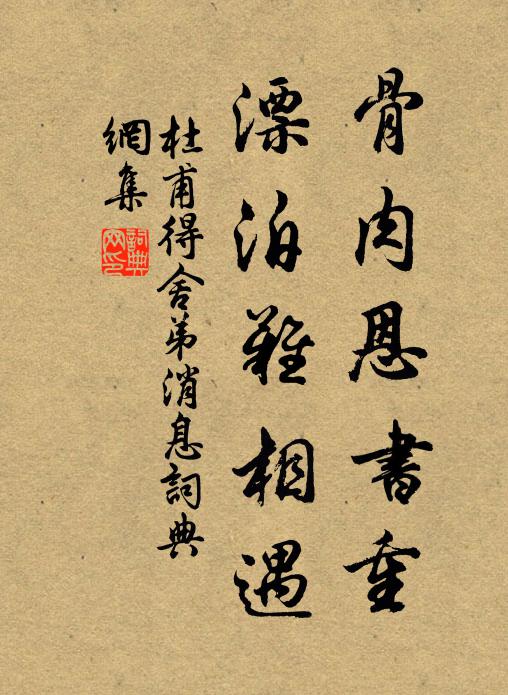 骨肉恩書重
漂泊難相遇
杜甫得舍弟消息詞典
網集
詞典
網印